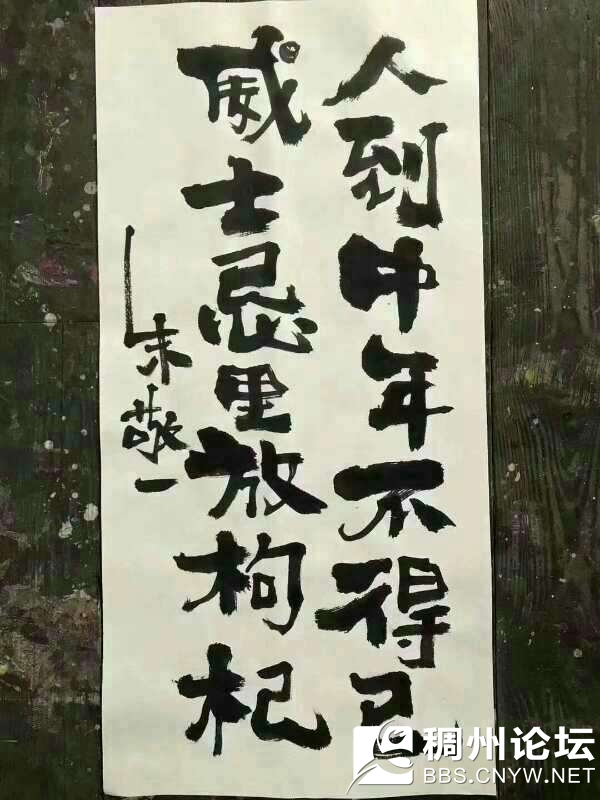 人到中年不得已
威士忌里放枸杞
朱敬一
稠州论坛
BBS.CNYW.NET